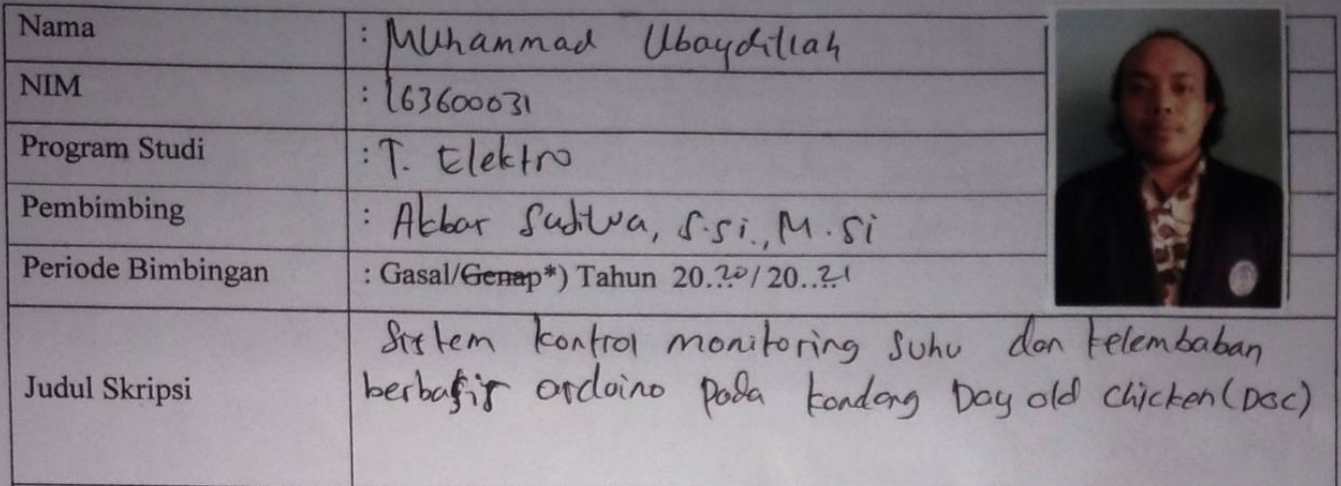 Nama : Muhammad Ubaydillah
NIM : 163600031
Program Studi : T. Elektro
Pembimbing : Akbar Sujiwa, S.si., M.si
Periode Bimbingan : Gasal/Genap*) Tahun 20..20 / 20..21
Judul Skripsi
Sistem kontrol monitoring Suhu dan kelembaban
berbasis arduino pada kandang Day old chicken (DOC)